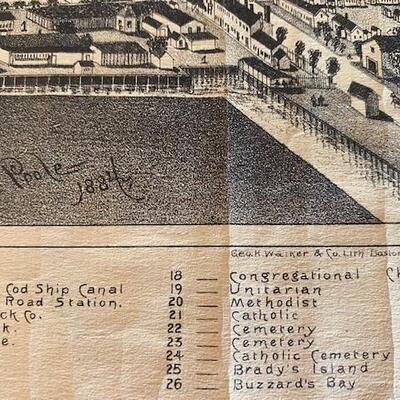 1
Poole
1884.
Geo. H. Walker & Co. Lith. Boston
18 — Congregational Ch
Cod Ship Canal 19 — Unitarian
Road Station. 20 — Methodist
ck Co. 21 — Catholic
k. 22 — Cemetery
e. 23 — Cemetery
24 — Catholic Cemetery
25 — Brady's Island
26 — Buzzard's Bay